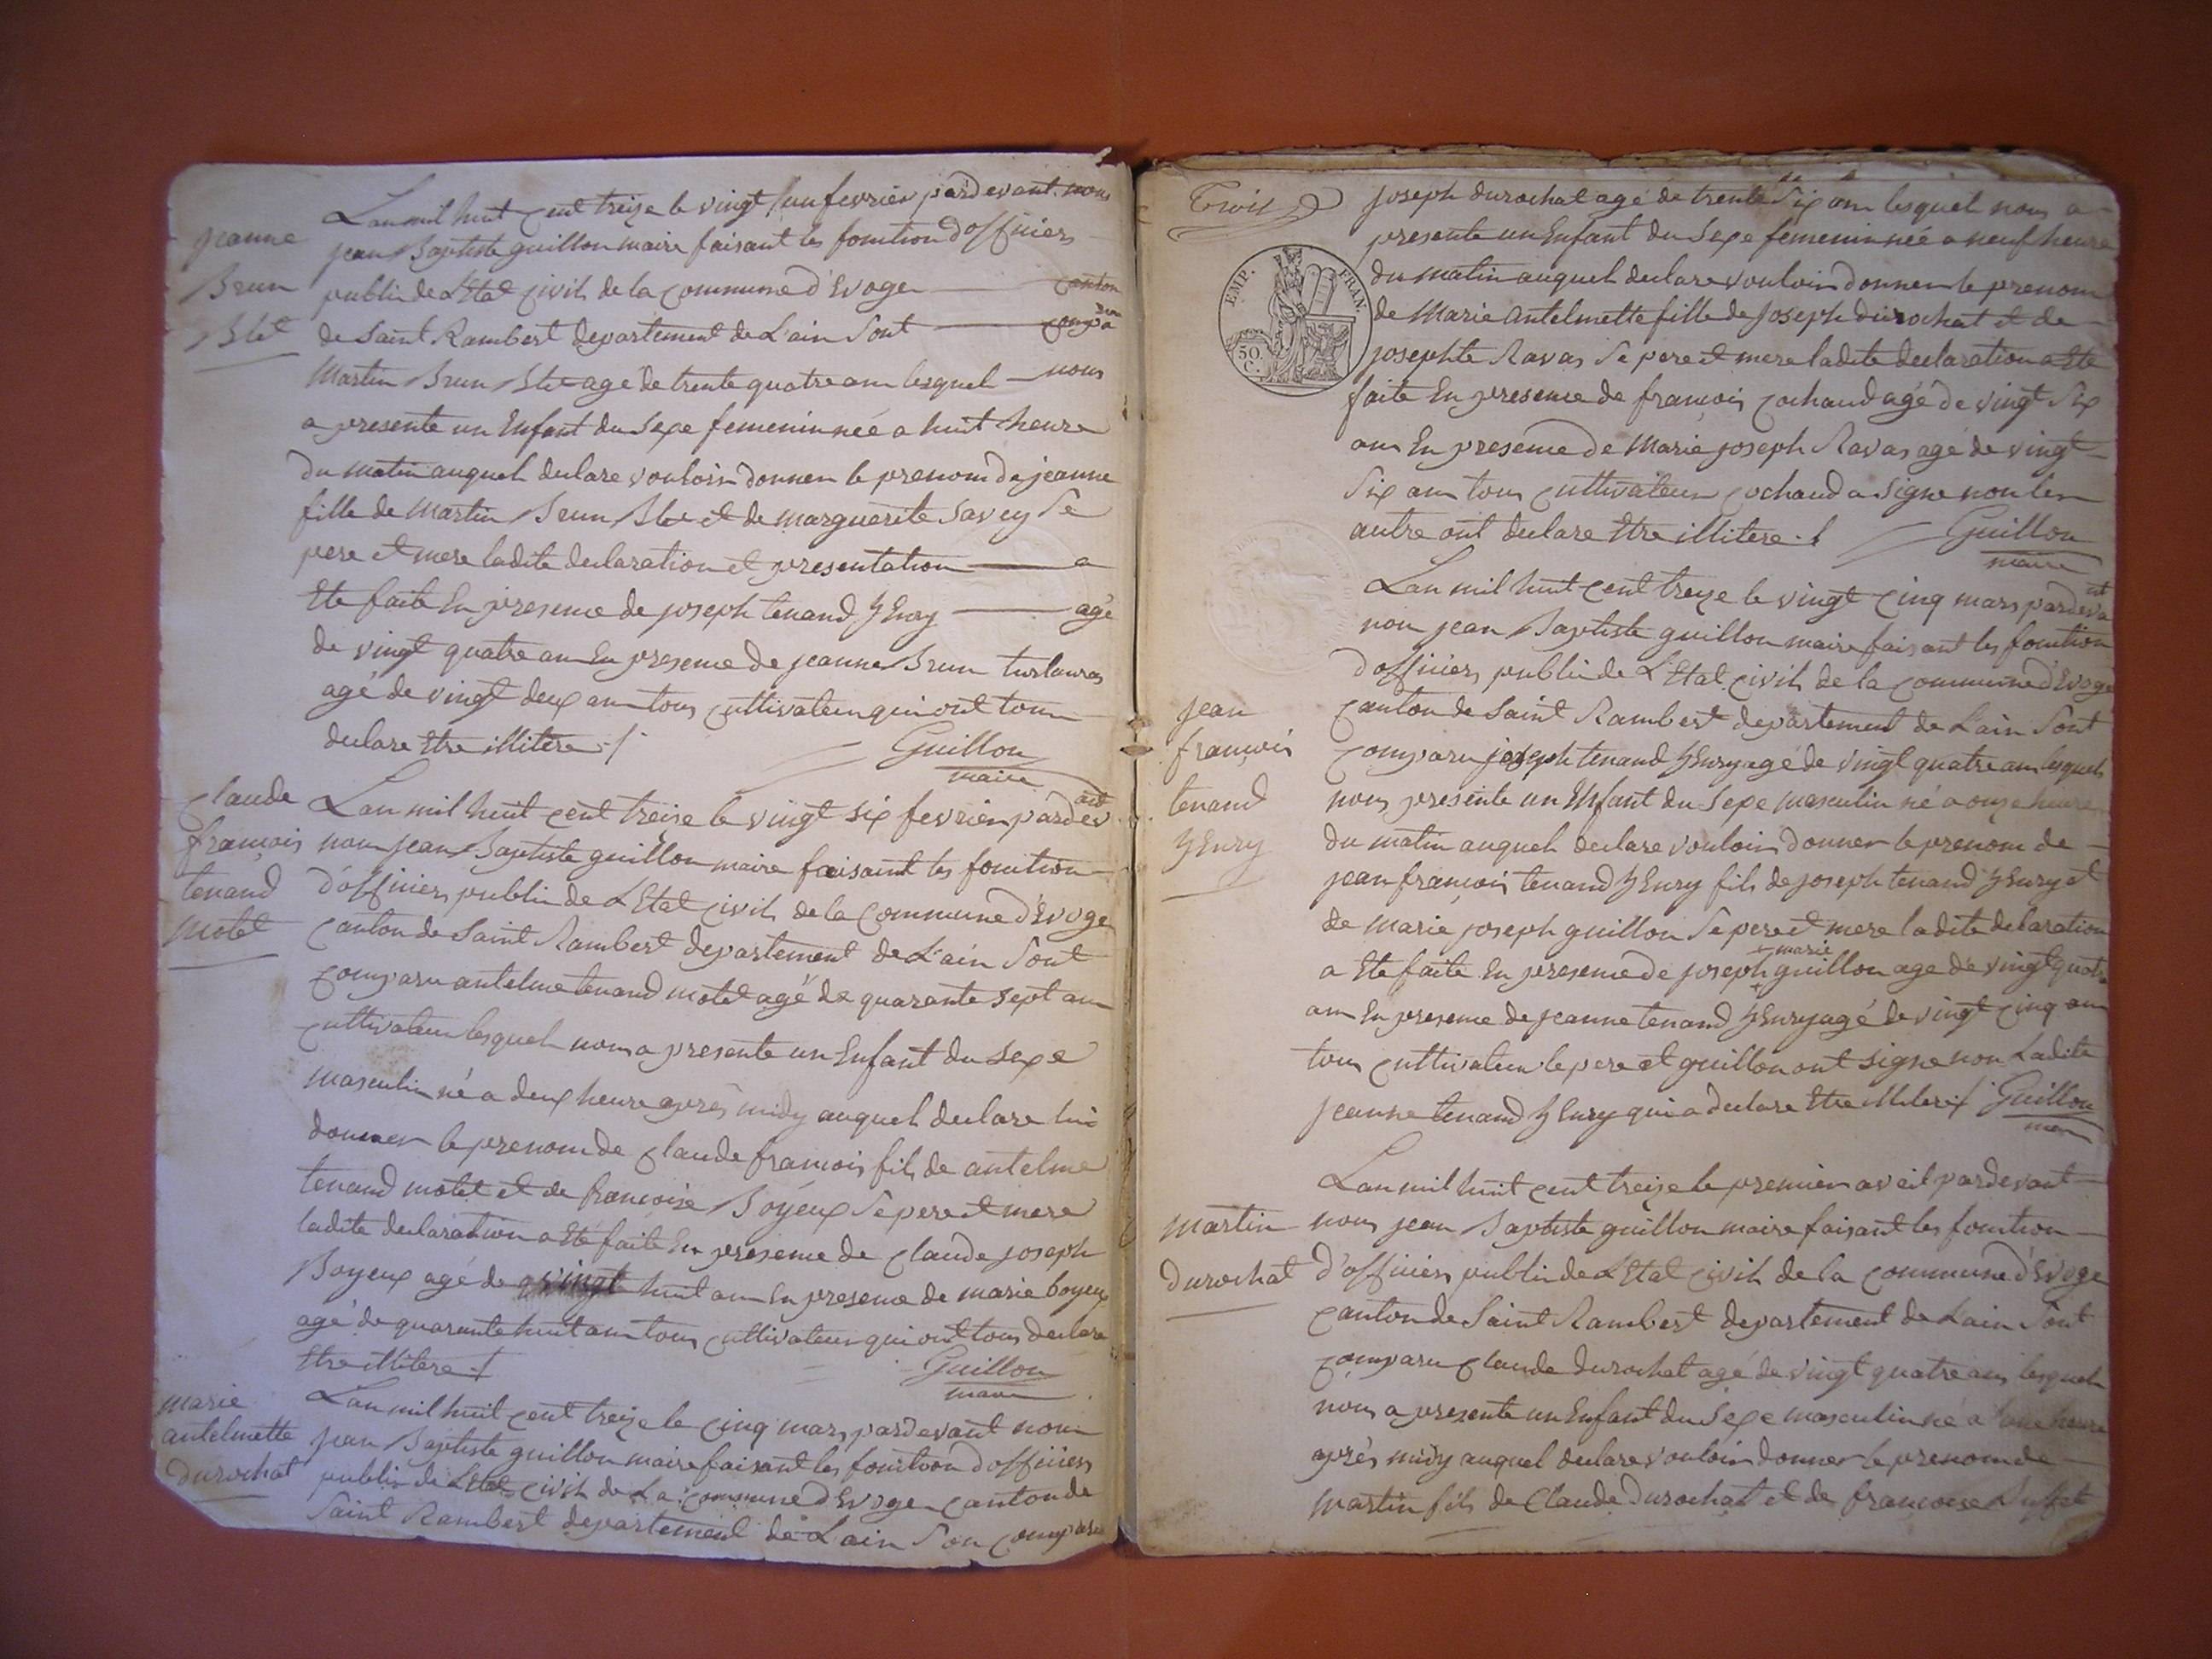 jeanne
Brun
Blet
Lan mil huit cent treize le vingt un fevrier pardevant nous
jean Baptiste guillon maire faisant les fonction d'officiers
public de Létat civil de la commune d'Evoge canton
de Saint Rambert departement de L'ain Sont compa
Martin Brun Blet agé de trente quatre ans lesquel nous
a presente un Enfant du Sexe femenin née a huit heure
du matin auquel declare vouloir donner le prenom de jeanne
fille de Martin Brun Blet et de marguerite Savey Se
pere et mere ladite declaration et presentation a
Ete faite En presence de joseph tenand hEnry agé
de vingt quatre an En presence de jeanne Brun
agé de vingt deux an tous cultivateur qui ont tous
declare Etre illitere ./. Guillon
maire
claude
françois
tenand
motet
Lan mil huit cent treize le vingt six fevrier pardev
ant
nous jean Baptiste guillon maire faisant les fonction
d'officiers public de LEtat civil de la Commune d'Evoge
canton de Saint Rambert departement de L'ain Sont
comparu antelme tenand motet agé de quarante sept an
cultivateur lesquel nous a presente un Enfant du Sexe
masculin né a deux heure après midy auquel declare lui
donner le prenom de claude françois fils de antelme
tenand motet et de françoise Boyeux Se pere et mere
ladite declaration a Eté faite En presence de claude joseph
Boyeux agé de vingt huit an En presence de marie boyeux
agé de quarante huit an tous cultivateur qui ont tous declare
Etre illitere ./. Guillon
maire
marie
antelmette
durochat
Lan mil huit cent treize le cinq mars pardevant nous
jean Baptiste guillon maire faisant les fonction d'officiers
public de LEtat civil de La commune d'Evoge canton de
Saint Rambert departement de Lain Son comparu
Trois
EMP. FRAN.
50.
C.
joseph durochat agé de trente Six an lesquel nous a
presente un Enfant du Sexe femenin née a neuf heure
du matin auquel declare vouloir donner le prenom
de Marie antelmette fille de joseph durochat et de
josephte Ravas Se pere et mere ladite declaration a Ete
faite En presence de françois cochaud agé de vingt Six
an En presence de Marie joseph Ravas agé de vingt
Six an tous cultivateur cochaud a Signe non les
autre ont declare Etre illitere ./. Guillon
maire
jean
françois
tenand
hEnry
Lan mil huit cent treize le vingt cinq mars pardeva
nt
nou jean Baptiste guillon maire faisant les fonction
d'officiers public de L'Etat civil de la commune d'Evoge
canton de Saint Rambert departement de Lain Sont
comparu joseph tenand hEnry agé de vingt quatre an lesquel
nous presente un Enfant du Sexe masculin né a onze heure
du matin auquel declare vouloir donner le prenom de
jean françois tenand hEnry fils de joseph tenand hEnry et
de marie joseph guillon Se pere et mere ladite declaration
+ marie
a Ete faite En presence de joseph + guillon age de vingt quatre
an En presence de jeanne tenand hEnry agé de vingt cinq an
tous cultivateur le pere et guillon ont signe non Ladite
jeanne tenand hEnry qui a declare Etre illitere ./. Guillon
maire
martin
durochat
Lan mil huit cent treize le premier avril pardevant
nous jean Baptiste guillon maire faisant les fonction
d'officiers public de LEtat civil de la commune d'Evoge
canton de Saint Rambert departement de Lain Sont
comparu claude durochat agé de vingt quatre ans lesquel
nous a presente un Enfant du Sexe masculin né a une heure
après midy auquel declare vouloir donner le prenom de
martin fils de Claude durochat et de françoise